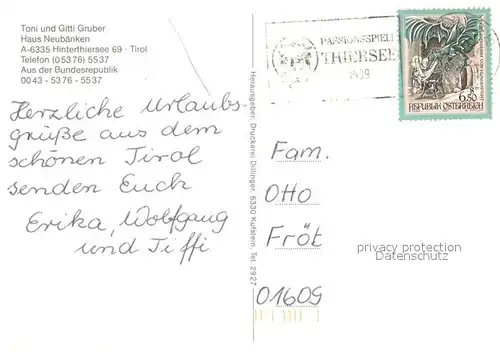 Toni und Gitti Gruber
Haus Neubänken
A-6335 Hinterthiersee 69 · Tirol
Telefon (05376) 5537
Aus der Bundesrepublik
0043 - 5376 - 5537
Herzliche Urlaubs-
grüße aus dem
schönen Tirol
senden Euch
Erika, Wolfgang
und Tiffi
Herausgeber: Druckerei Dillinger, 6330 Kufstein, Tel. 2927
PASSIONSSPIELE
THIERSEE
REPUBLIK ÖSTERREICH
Fam.
Otto
Fröt
privacy protection
Datenschutz
01609